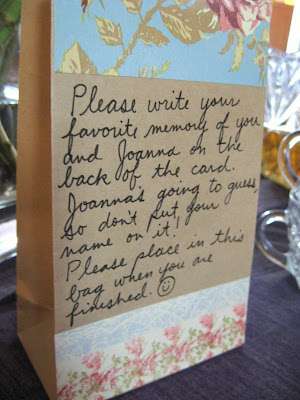 Please write your
favorite memory of you
and Joanna on the
back of the card.
Joanna's going to guess,
so don't put your
name on it!
Please place in this
bag when you are
finished. ☺